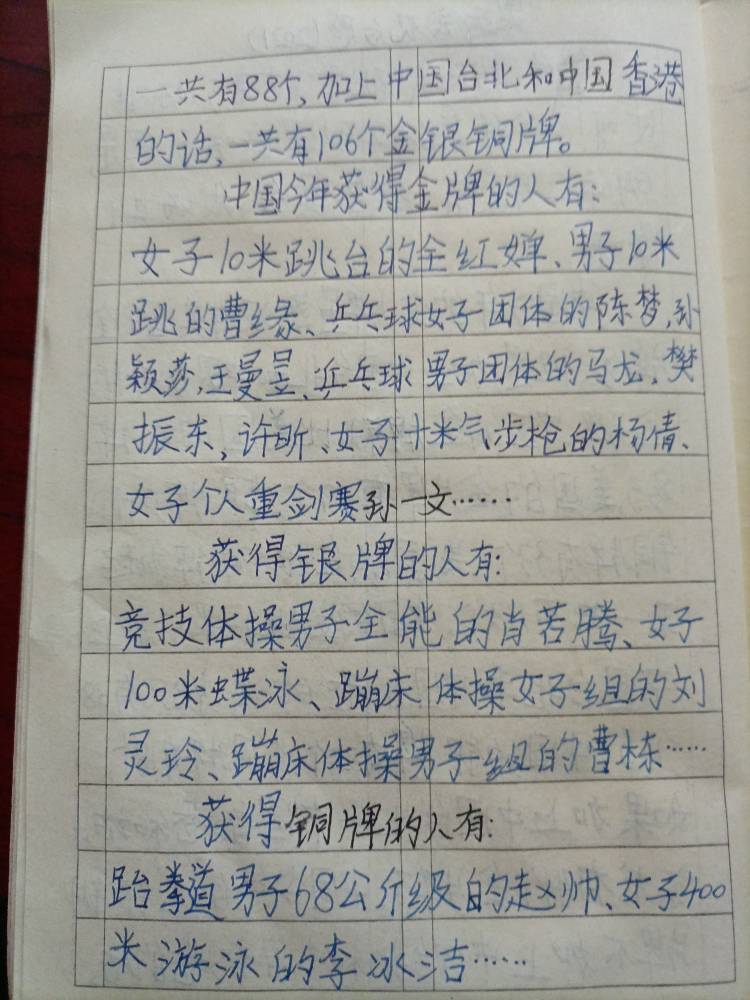 一共有88个,加上中国台北和中国香港
的话,一共有106个金银铜牌。
中国今年获得金牌的人有:
女子10米跳台的全红婵、男子10米
跳的曹缘、乒乓球女子团体的陈梦,孙
颖莎,王曼昱、乒乓球男子团体的马龙,樊
振东,许昕、女子十米气步枪的杨倩、
女子个人重剑赛孙一文……
获得银牌的人有:
竞技体操男子全能的肖若腾、女子
100米蝶泳、蹦床体操女子组的刘
灵玲、蹦床体操男子组的曹栋……
获得铜牌的人有:
跆拳道男子68公斤级的赵帅、女子400
米游泳的李冰洁……